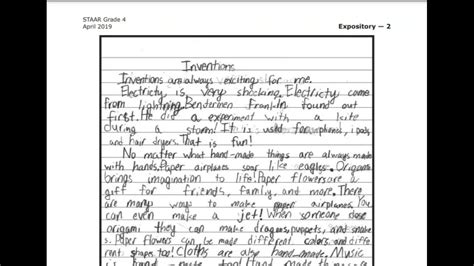 STAAR Grade 4
April 2019
Expository — 2
Inventions
Inventions are always exciting for me.
Electricity is very shocking. Electricty come
from lightning. Bendermen Franklin found out
first. He did a experiment with a kite
during a storm! It is used for phones, i pods,
and hair dryers. That is fun!
No matter what hand-made things are always made
with hands. Paper airplanes soar like eagles. Origami
brings imagination to life! Paper flowers are a
gift for friends, family, and more. There
are many ways to make paper airplanes. You
can even make a jet! When someone does
origami they can make dragons, puppets, and snakes
. Paper flowers can be made different colors and differ
rent shapes too! Cloths are also hand made. Music
is hand - made too! Hand made to make